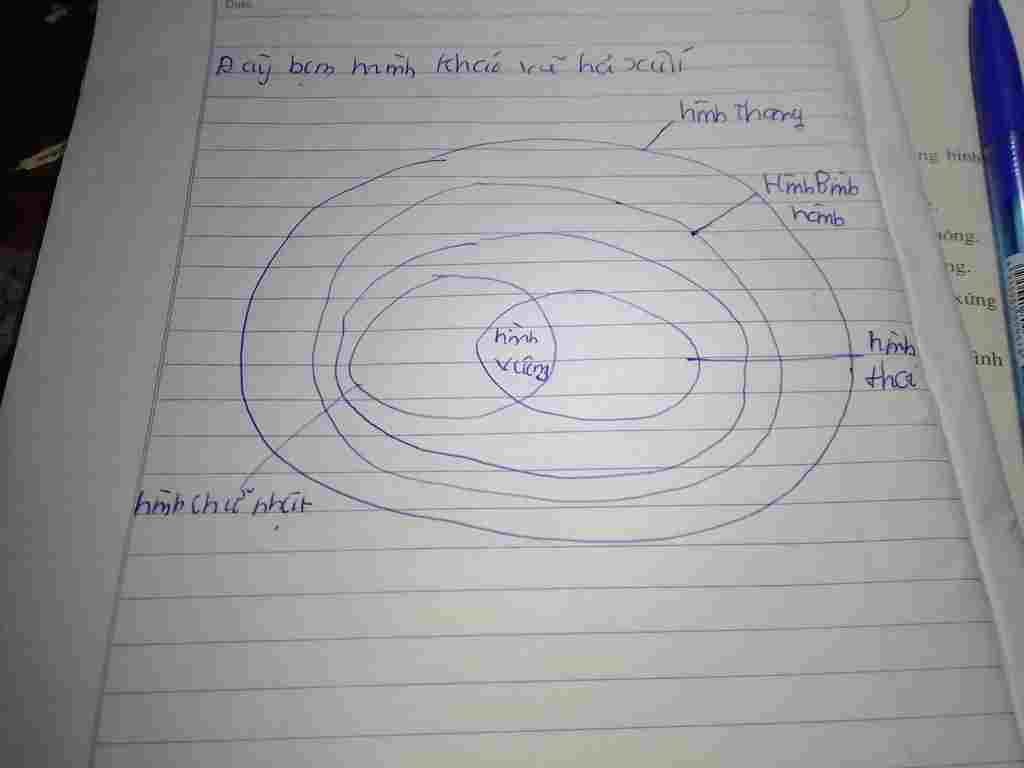 Date
Đây bạn mình khai vẽ hả xuli
hình thang
Hình Bình
hành
hình
vuông
hình
thoi
hình chữ nhật
ng hình
hông.
ng.
xứng
ình